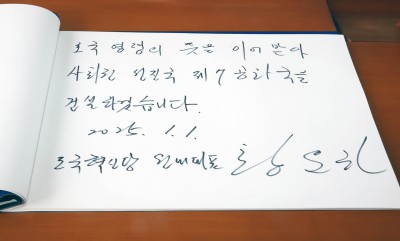 호국 영령의 뜻을 이어 받아
사회권 선진국 제7공화국을
건설하겠습니다.
2025. 1. 1.
조국혁신당 원내대표 황운하